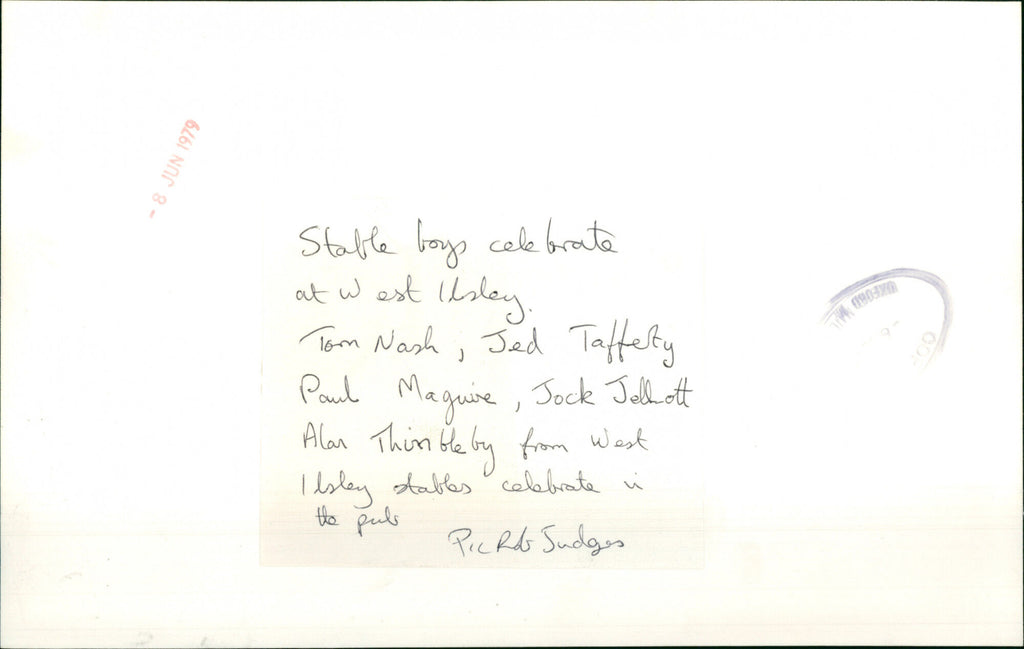 - 8 JUN 1979
Stable boys celebrate
at West Ilsley.
Tom Nash, Jed Tafferty
Paul Maguire, Jock Jellnott
Alan Thimbleby from West
Ilsley stables celebrate in
the pub
Pic Rob Judges
OXFORD